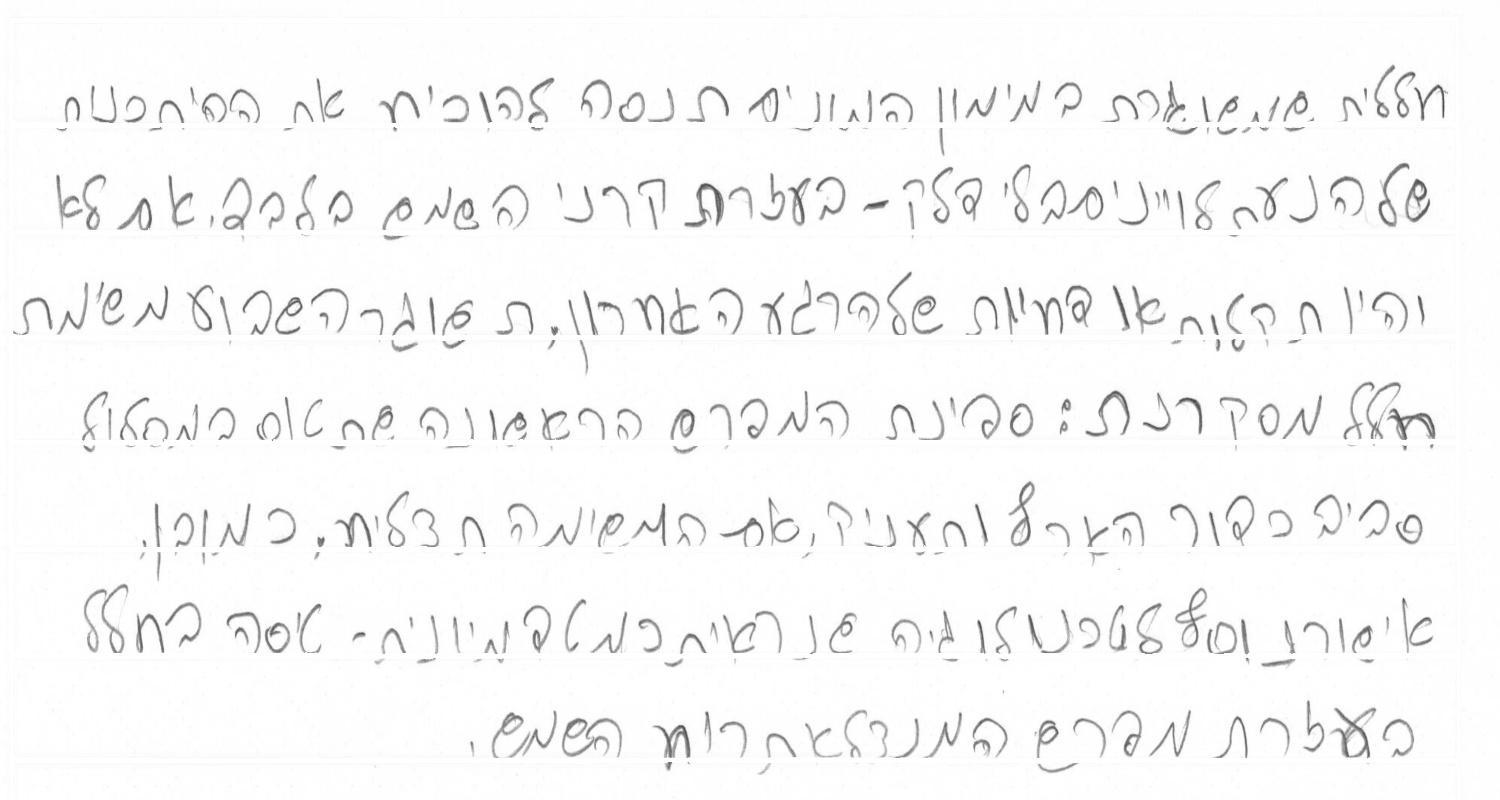 חללית שמשוגרת במימון המונים תנסה להוכיח את ההיתכנות
של הנעת לוויינים בלי דלק - בעזרת קרני השמש בלבד. אם לא
יהיו תקלות או דחיות של הרגע האחרון, תשוגר השבוע משימת
חלל מסקרנת: ספינת המפרש הראשונה שתטוס במסלול
סביב כדור הארץ ותעניק, אם המשימה תצליח, כמובן,
אישור נוסף לטכנולוגיה שנראית כמעט דמיונית - טיסה בחלל
בעזרת מפרש המנצל את רוח השמש.